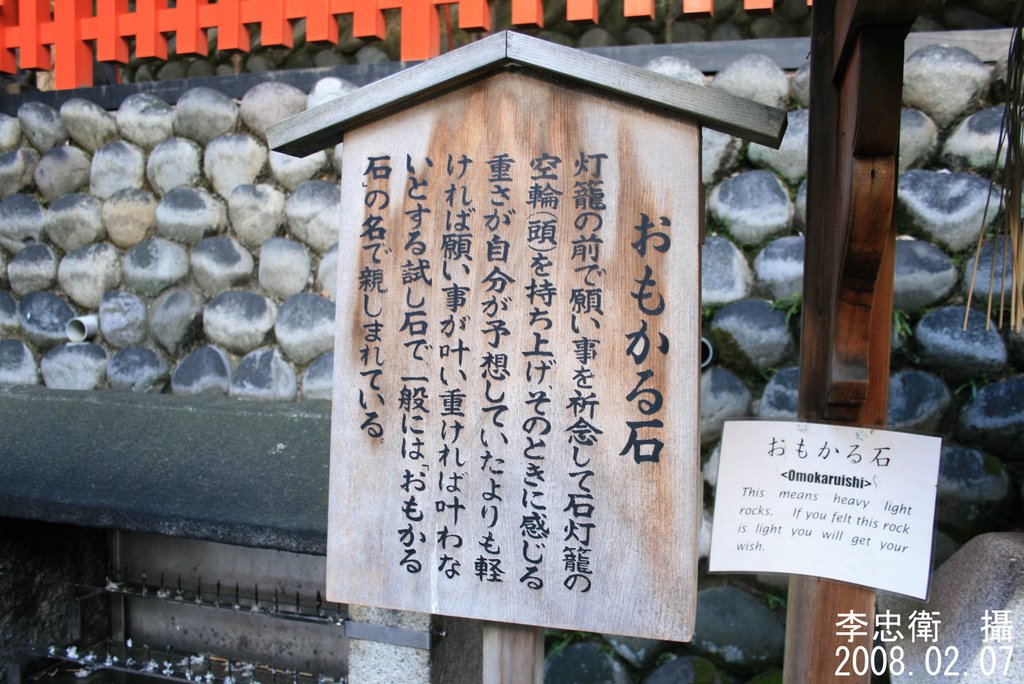 おもかる石
灯籠の前で願い事を祈念して石灯籠の
空輪(頭)を持ち上げ、そのときに感じる
重さが自分が予想していたよりも軽
ければ願い事が叶い、重ければ叶わな
いとする試し石で、一般には「おもかる
石」の名で親しまれている。
おもかる石
<Omokaruishi>
This means heavy light
rocks. If you felt this rock
is light you will get your
wish.
李忠衛 攝
2008.02.07